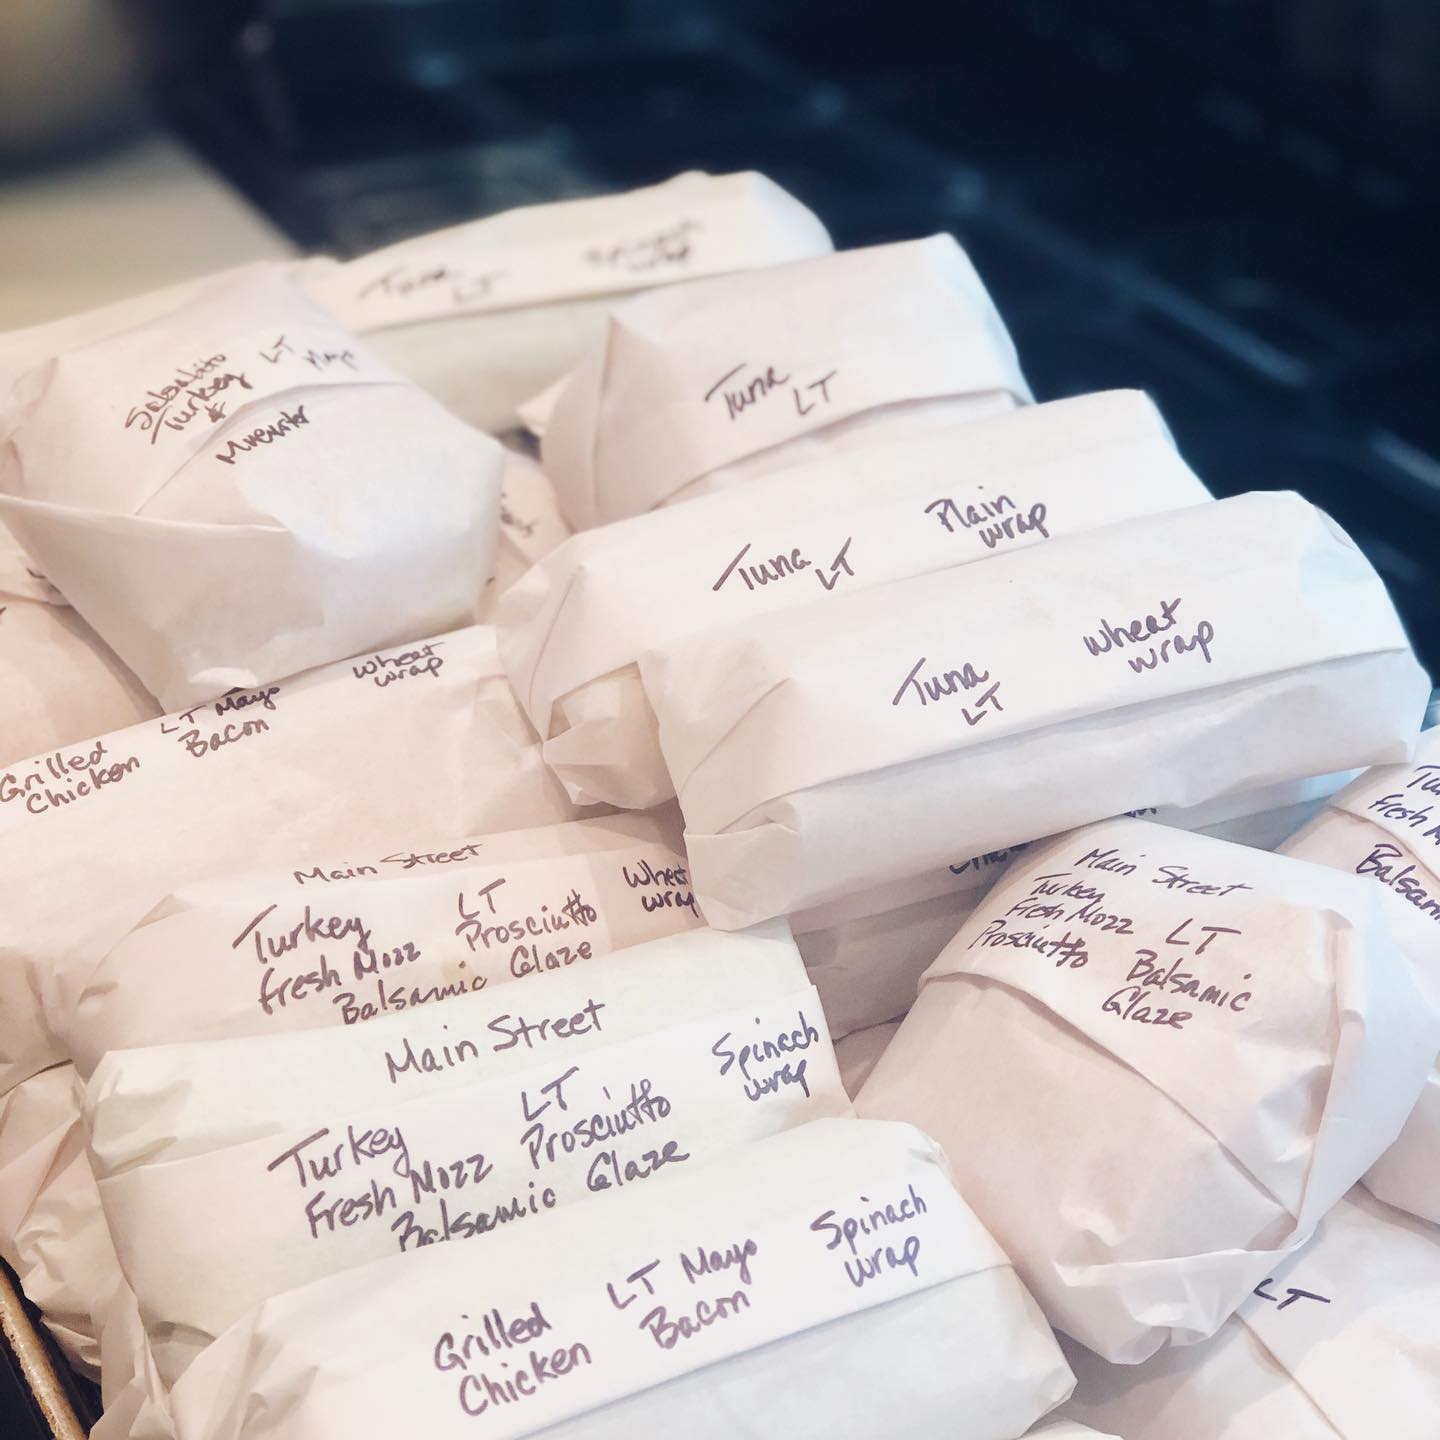 Tuna
LT
wrap
Turkey
LT
Mayo
&
Muenster
Tuna
LT
Tuna
LT
Plain
wrap
Tuna
LT
wheat
wrap
Grilled
Chicken
LT Mayo
Bacon
wheat
wrap
Main Street
Turkey
Fresh Mozz
LT
Prosciutto
Balsamic Glaze
Wheat
wrap
Main Street
Turkey
Fresh Mozz
LT
Prosciutto
Balsamic Glaze
Spinach
wrap
Grilled
Chicken
LT Mayo
Bacon
Spinach
wrap
Main Street
Turkey
Fresh Mozz
LT
Prosciutto
Balsamic
Glaze
Fresh
LT